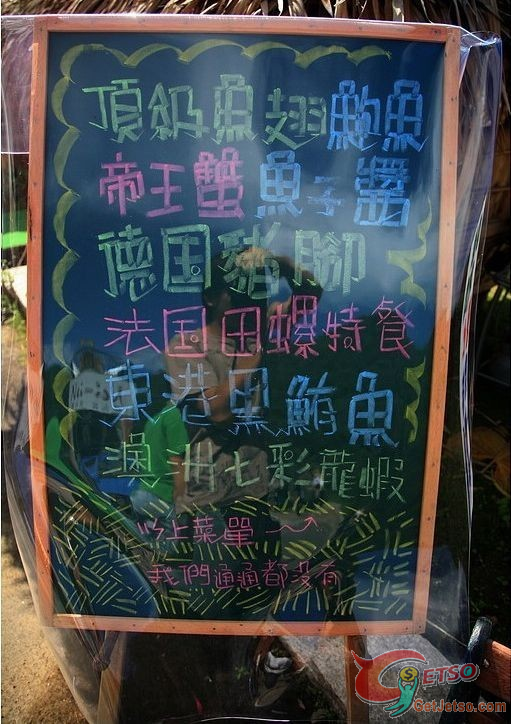 頂級魚翅鮑魚
帝王蟹魚子醬
德国豬腳
法国田螺特餐
東港黑鮪魚
澳洲七彩龍蝦
以上菜單
我們通通都沒有
GETSO
GetJetso.com